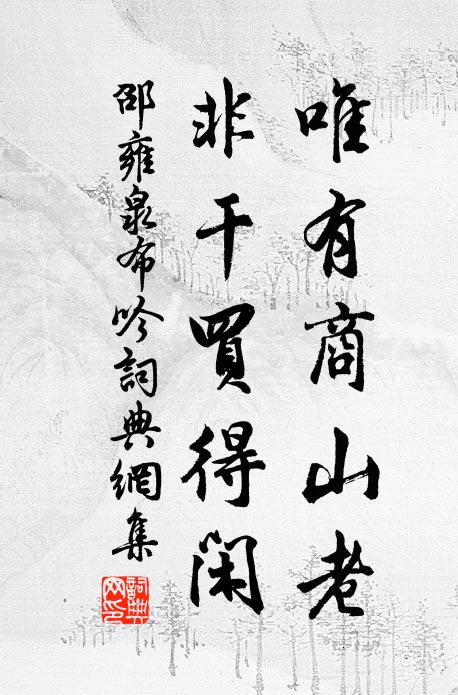 唯有商山老
非干買得閑
邵雍泉布吟詞典網集
詞典
网印